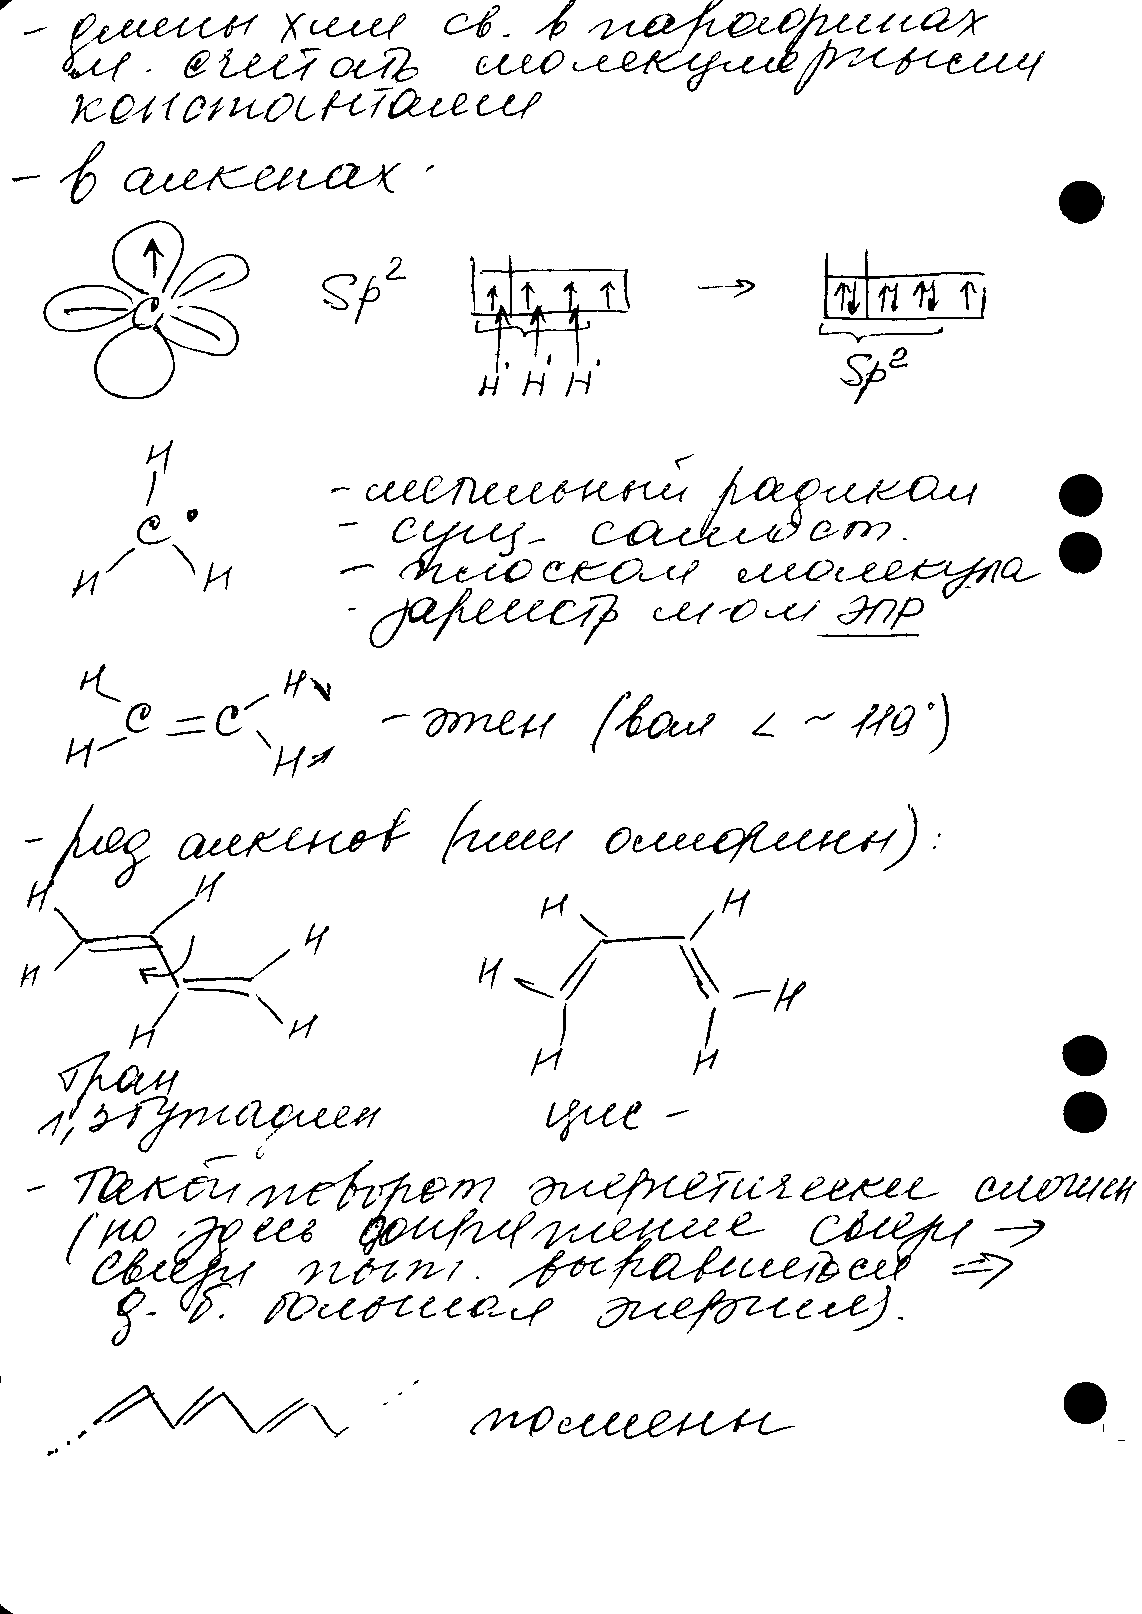 - длины хим св. в парафинах
м. считать молекулярными
константами
- в алкенах
C Sp² → Sp²
H· H· H·
H
C·
H H
- метильный радикал
- сущ. самост.
- плоская молекула
- зарегистр м-ом ЭПР
H H
C = C - этен (вал < ~ 119°)
H H
- ряд алкенов (или олифины):
H H H H
H H H H
H H H H
тран
1,3 бутадиен цис -
- такой поворот энергетически сложен
(но здесь сопряжение связи →
связи выравниваются ⇒
д. б. большая энергия).
полиены